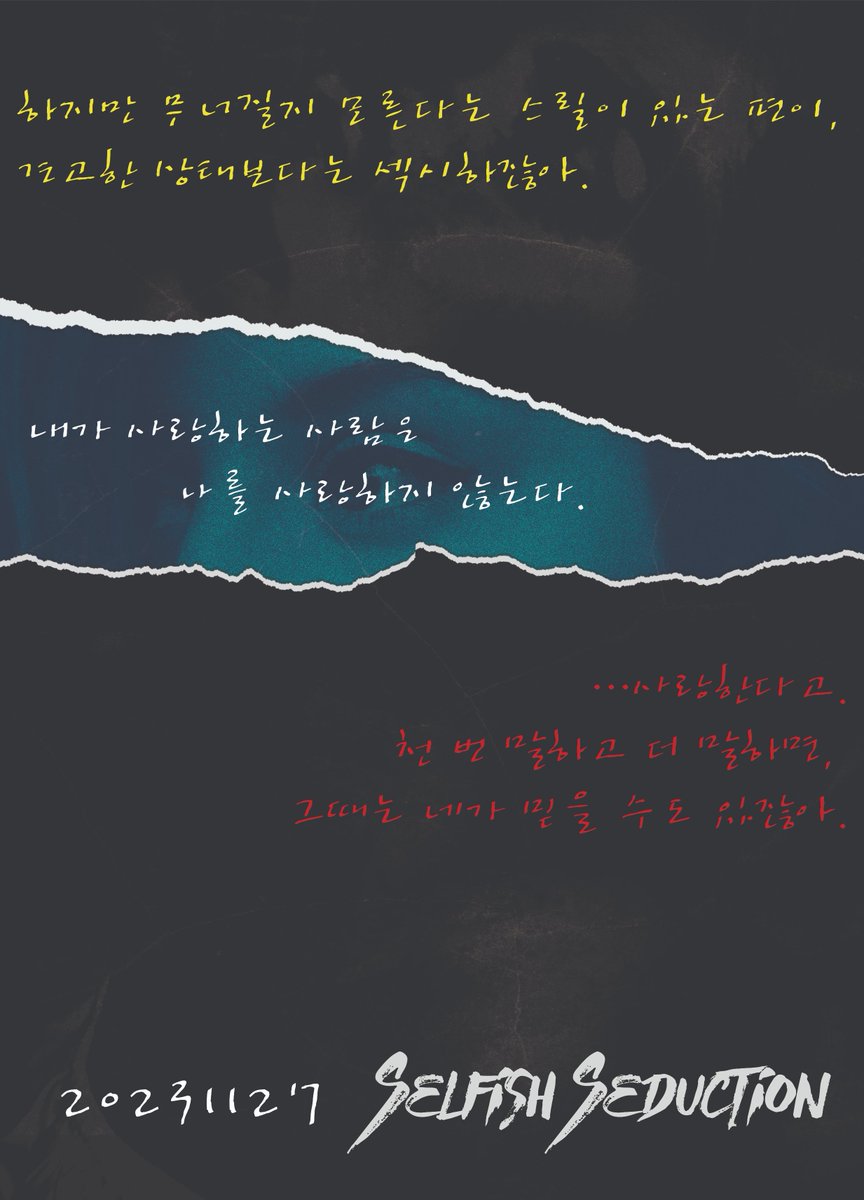 하지만 무너질지 모른다는 스릴이 있는 편이,
견고한 상태보다는 섹시하잖아.
내가 사랑하는 사람은
나를 사랑하지 않는다.
…사랑한다고.
천 번 말하고 더 말하면,
그때는 네가 믿을 수도 있잖아.
20231127 SELFISH SEDUCTION